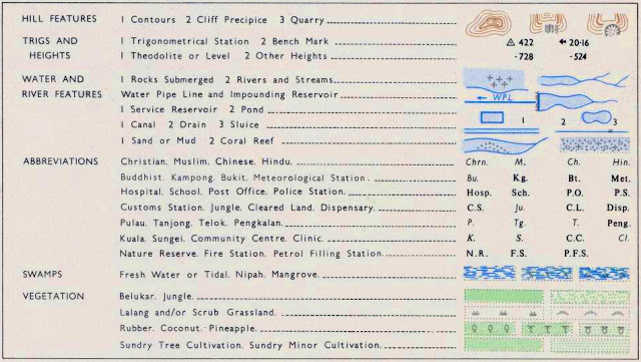 HILL FEATURES 1 Contours 2 Cliff Precipice 3 Quarry
TRIGS AND 1 Trigonometrical Station 2 Bench Mark 422 20·16
HEIGHTS 1 Theodolite or Level 2 Other Heights ·728 ·524
WATER AND 1 Rocks Submerged 2 Rivers and Streams
RIVER FEATURES Water Pipe Line and Impounding Reservoir W.P.L
1 Service Reservoir 2 Pond 1 2 3
1 Canal 2 Drain 3 Sluice
1 Sand or Mud 2 Coral Reef
ABBREVIATIONS Christian, Muslim, Chinese, Hindu. Chrn. M. Ch. Hin.
Buddhist, Kampong, Bukit, Meteorological Station Bu. Kg. Bt. Met.
Hospital, School, Post Office, Police Station. Hosp. Sch. P.O. P.S.
Customs Station, Jungle, Cleared Land, Dispensary. C.S. Ju. C.L. Disp.
Pulau, Tanjong, Telok, Pengkalan. P. Tg. T. Peng.
Kuala, Sungei, Community Centre, Clinic. K. S. C.C. Cl.
Nature Reserve, Fire Station, Petrol Filling Station N.R. F.S. P.F.S.
SWAMPS Fresh Water or Tidal, Nipah, Mangrove.
VEGETATION Belukar, Jungle.
Lalang and/or Scrub Grassland.
Rubber, Coconut, Pineapple.
Sundry Tree Cultivation, Sundry Minor Cultivation.